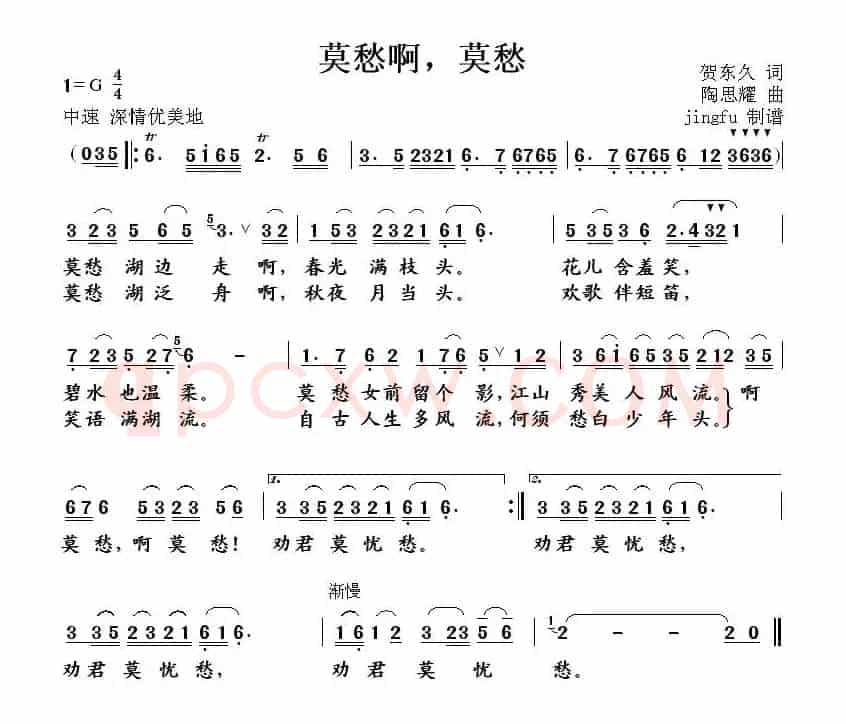 莫愁啊，莫愁
1=G 4/4
贺东久 词
中速 深情优美地
陶思耀 曲
jingfu 制谱
(035 ‖: 6. 5i65 2. 5 6 | 3. 5 2321 6. 7 6765 | 6. 7 6765 6 12 3636)
3 23 5 6 5 5 3. ∨ 32 | 1 53 2321 61 6. | 5 353 6 2.4321
莫愁 湖边 走 啊，春光 满枝 头。 花儿 含羞笑，
莫愁 湖泛 舟 啊，秋夜 月当 头。 欢歌 伴短笛，
7 235 27 5 6 - | 1. 7 6 2 121 76 5 ∨ 1 2 | 3 6i 6535 2212 35
碧水 也温 柔。 莫 愁女前 留个 影，江山 秀美 人 风流。 啊
笑语 满湖 流。 自 古人生 多风 流，何须 愁白 少 年头。
qpcxw.com
676 5323 56 | 1. 3 335 2321 61 6. :‖ 2. 3 335 2321 61 6. |
莫愁，啊 莫 愁！ 劝君 莫忧 愁。 劝君 莫忧 愁，
渐慢
3 335 2321 61 6. | 161 2 3 235 6 | 1 2 - - 2 0 ‖
劝君 莫忧 愁， 劝 君 莫 忧 愁。